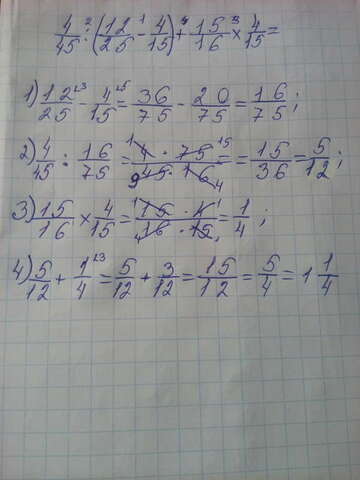 4/45 : (12/25 - 4/15) + 15/16 × 4/15 =
1) 12/25 - 4/15 = 36/75 - 20/75 = 16/75;
2) 4/45 : 16/75 = 4 · 75/45 · 16 = = 15/36 = 5/12;
3) 15/16 × 4/15 = 15 · 4/16 · 15 = 1/4;
4) 5/12 + 1/4 = 5/12 + 3/12 = 15/12 = 5/4 = 1 1/4